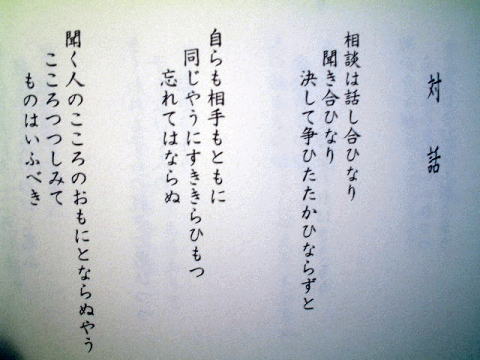 対話
相談は話し合ひなり
聞き合ひなり
決して争ひたたかひならずと
自らも相手もともに
同じやうにすききらひもつ
忘れてはならぬ
聞く人のこころのおもにとならぬやう
こころつつしみて
ものはいふべき